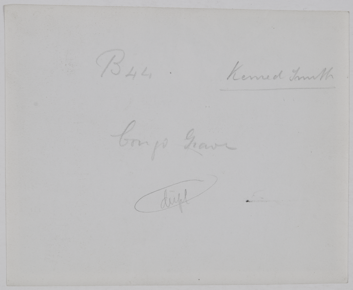 B44. Kenred Smith
Congo Grave
dupl